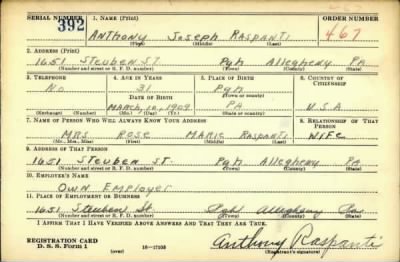 467
SERIAL NUMBER 1. NAME (Print) ORDER NUMBER
392 Anthony Joseph Raspanti 467
(First) (Middle) (Last)
2. ADDRESS (Print)
1651 Steuben St. Pgh Allegheny PA
(Number and street or R. F. D. number) (Town) (County) (State)
3. TELEPHONE 4. AGE IN YEARS 5. PLACE OF BIRTH 6. COUNTRY OF CITIZENSHIP
No 31 Pgh
DATE OF BIRTH (Town or county)
March 1909 PA U.S.A
(Exchange) (Number) (Mo.) (Day) (Yr.) (State or country)
7. NAME OF PERSON WHO WILL ALWAYS KNOW YOUR ADDRESS 8. RELATIONSHIP OF THAT PERSON
Mrs Rose Marie Raspanti Wife
(Mr., Mrs., Miss) (First) (Middle) (Last)
9. ADDRESS OF THAT PERSON
1651 Steuben St. Pgh Allegheny PA
(Number and street or R. F. D. number) (Town) (County) (State)
10. EMPLOYER'S NAME
Own Employer
11. PLACE OF EMPLOYMENT OR BUSINESS
1651 Steuben St. Pgh Allegheny Pa
(Number and street or R. F. D. number) (Town) (County) (State)
I AFFIRM THAT I HAVE VERIFIED ABOVE ANSWERS AND THAT THEY ARE TRUE.
REGISTRATION CARD
D. S. S. Form 1 (over) 16-17105 Anthony Raspanti
(Registrant's signature)